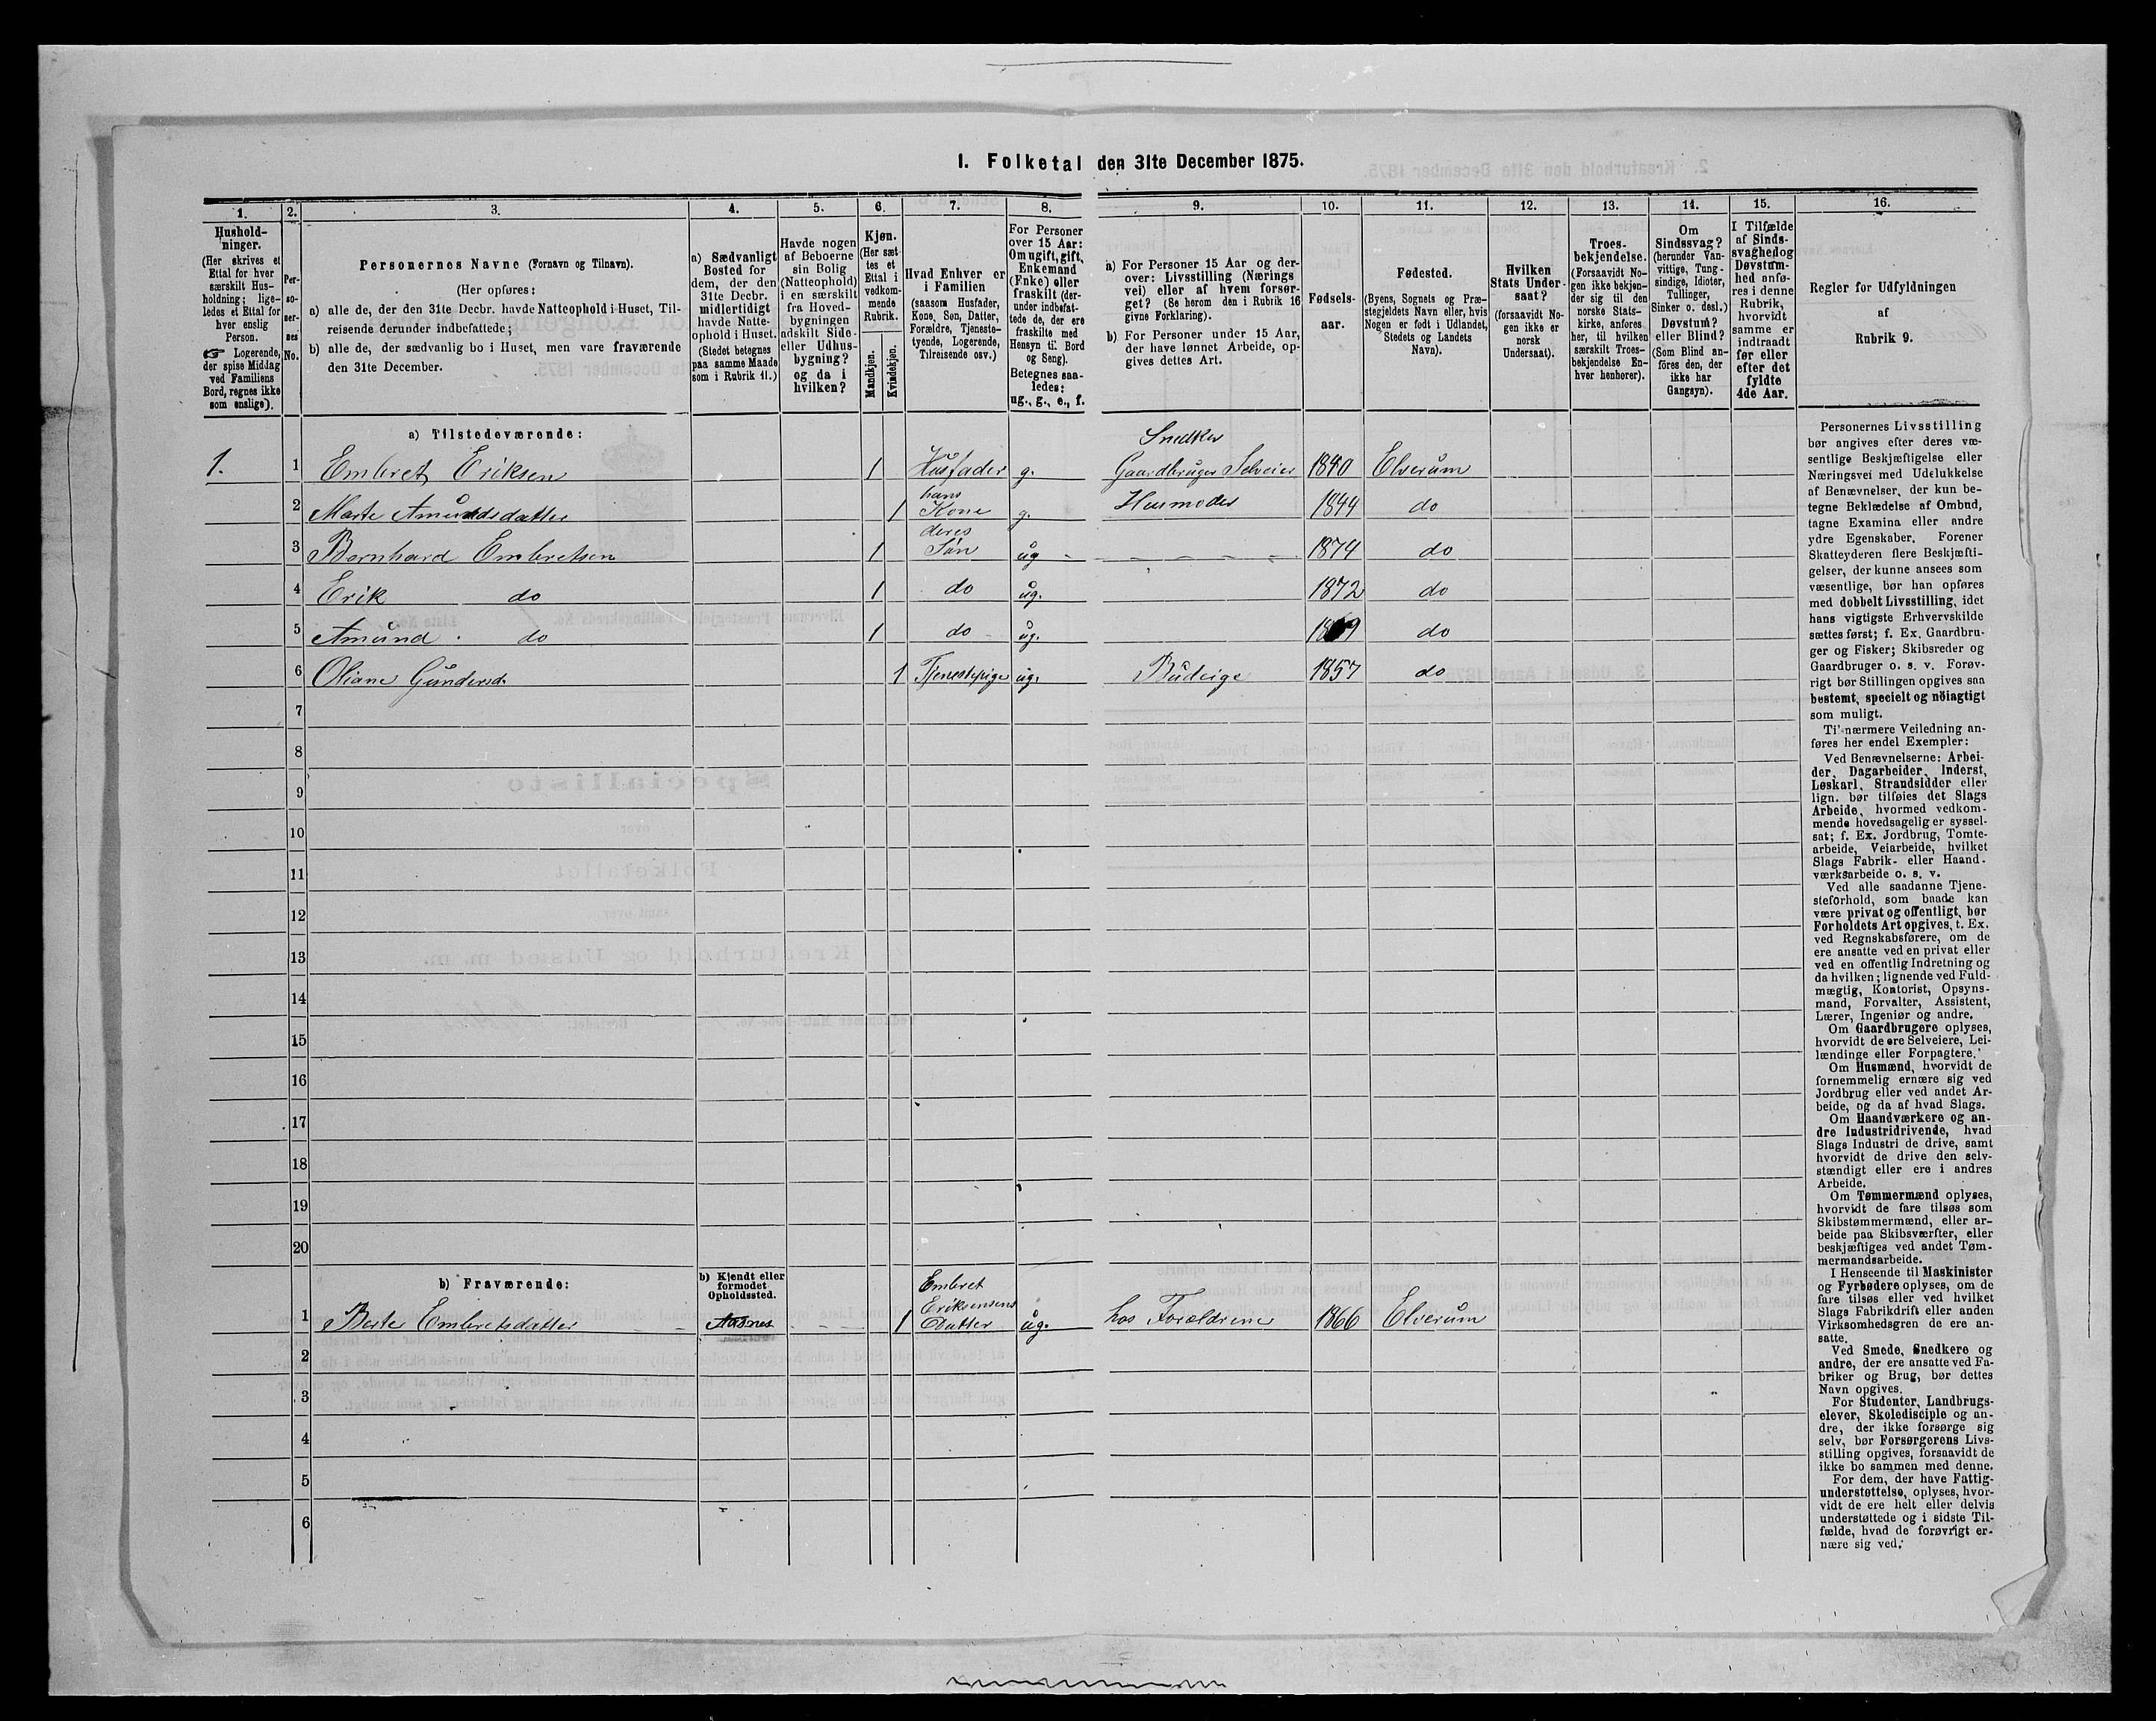 I. Folketal den 31te December 1875.
1. 2. 3. 4. 5. 6. 7. 8. 9. 10. 11. 12. 13. 14. 15. 16.
Hushold-
ninger.
(Her skrives et
Ettal for hver
særskilt Hus-
holdning; lige-
ledes et Ettal for
hver enslig
Person.
☞ Logerende,
der spise Middag
ved Familiens
Bord, regnes ikke
som enslige).
Per-
so-
ner-
nes
No.
Personernes Navne (Fornavn og Tilnavn).
(Her opføres:
a) alle de, der den 31te Decbr. havde Natteophold i Huset, Til-
reisende derunder indbefattede;
b) alle de, der sædvanlig bo i Huset, men vare fraværende
den 31te December.
a) Sædvanligt
Bosted for
dem, der den
31te Decbr.
midlertidigt
havde Natte-
ophold i Huset.
(Stedet betegnes
paa samme Maade
som i Rubrik 11.)
Havde nogen
af Beboerne
sin Bolig
(Natteophold)
i en særskilt
fra Hoved-
bygningen
adskilt Side-
eller Udhus-
bygning?
og da i
hvilken?
Kjøn.
(Her sæt-
tes et
Ettal i
vedkom-
mende
Rubrik.
Mandkjøn.
Kvindekjøn.
Hvad Enhver er
i Familien
(saasom Husfader,
Kone, Søn, Datter,
Forældre, Tjeneste-
tyende, Logerende,
Tilreisende osv.)
For Personer
over 15 Aar:
Om ugift, gift,
Enkemand
(Enke) eller
fraskilt (der-
under indbefat-
tede de, der ere
fraskilte med
Hensyn til Bord
og Seng).
Betegnes saa-
ledes:
ug., g., e., f.
a) For Personer 15 Aar og der-
over: Livsstilling (Nærings
vei) eller af hvem forsør-
get? (Se herom den i Rubrik 16
givne Forklaring).
b) For Personer under 15 Aar,
der have lønnet Arbeide, op-
gives dettes Art.
Fødsels-
aar.
Fødested.
(Byens, Sognets og Præ-
stegjeldets Navn eller, hvis
Nogen er født i Udlandet,
Stedets og Landets
Navn).
Hvilken
Stats Under-
saat?
(forsaavidt No-
gen ikke er
norsk
Undersaat).
Troes-
bekjendelse.
(Forsaavidt No-
gen ikke bekjen-
der sig til den
norske Stats-
kirke, anføres
her, til hvilken
særskilt Troes-
bekjendelse En-
hver henhører).
Om
Sindssvag?
(herunder Van-
vittige, Tung-
sindige, Idioter,
Tullinger,
Sinker o. desl.)
Døvstum?
eller Blind?
(Som Blind an-
føres den, der
ikke har
Gangsyn).
I Tilfælde
af Sinds-
svaghed og
Døvstum-
hed anfø-
res i denne
Rubrik,
hvorvidt
samme er
indtraadt
før eller
efter det
fyldte
4de Aar.
Regler for Udfyldningen
af
Rubrik 9.
a) Tilstedeværende:
Snedker
1. 1 Embret Eriksen 1 Husfader g. Gaardbruger Selveier 1840 Elverum
hans
2 Marte Amundsdatter 1 Kone g. Husmoder 1844 do
deres
3 Bernhard Embretsen 1 Søn ug - 1874 do
4 Erik do 1 do ug. 1872 do
5 Amund do 1 do ug. 1869 do
6 Oliane Gundersd. 1 Tjenestepige ug. Budeige 1857 do
7
8
9
10
11
12
13
14
15
16
17
18
19
20
b) Fraværende:
b) Kjendt eller
formodet
Opholdssted.
Embret
Eriksensens
1 Berte Embretsdatter Aasnes 1 Datter ug. hos Forældrene 1866 Elverum
2
3
4
5
6
Personernes Livsstilling
bør angives efter deres væ-
sentlige Beskjæftigelse eller
Næringsvei med Udelukkelse
af Benævnelser, der kun be-
tegne Beklædelse af Ombud,
tagne Examina eller andre
ydre Egenskaber. Forener
Skatteyderen flere Beskjæfti-
gelser, der kunne ansees som
væsentlige, bør han opføres
med dobbelt Livsstilling, idet
hans vigtigste Erhvervskilde
sættes først; f. Ex. Gaardbru-
ger og Fisker; Skibsreder og
Gaardbruger o. s. v. Forøv-
rigt bør Stillingen opgives saa
bestemt, specielt og nöiagtigt
som muligt.
Til nærmere Veiledning an-
føres her endel Exempler:
Ved Benævnelserne: Arbei-
der, Dagarbeider, Inderst,
Løskarl, Strandsidder eller
lign. bør tilføies det Slags
Arbeide, hvormed vedkom-
mende hovedsagelig er syssel-
sat; f. Ex. Jordbrug, Tomte-
arbeide, Veiarbeide, hvilket
Slags Fabrik- eller Haand-
værksarbeide o. s. v.
Ved alle saadanne Tjene-
steforhold, som baade kan
være privat og offentligt, bør
Forholdets Art opgives, t. Ex.
ved Regnskabsførere, om de
ere ansatte ved en privat eller
ved en offentlig Indretning og
da hvilken; lignende ved Fuld-
mægtig, Kontorist, Opsyns-
mand, Forvalter, Assistent,
Lærer, Ingeniør og andre.
Om Gaardbrugere oplyses,
hvorvidt de ere Selveiere, Lei-
lændinge eller Forpagtere.
Om Husmænd, hvorvidt de
fornemmelig ernære sig ved
Jordbrug eller ved andet Ar-
beide, og da af hvad Slags.
Om Haandværkere og an-
dre Industridrivende, hvad
Slags Industri de drive, samt
hvorvidt de drive den selv-
stændigt eller ere i andres
Arbeide.
Om Tømmermænd oplyses,
hvorvidt de fare tilsøs som
Skibstømmermænd, eller ar-
beide paa Skibsværfter, eller
beskjæftiges ved andet Tøm-
mermandsarbeide.
I Henseende til Maskinister
og Fyrbødere oplyses, om de
fare tilsøs eller ved hvilket
Slags Fabrikdrift eller anden
Virksomhedsgren de ere an-
satte.
Ved Smede, Snedkere og
andre, der ere ansatte ved Fa-
briker og Brug, bør dettes
Navn opgives.
For Studenter, Landbrugs-
elever, Skoledisciple og an-
dre, der ikke forsørge sig
selv, bør Forsørgerens Livs-
stilling opgives, forsaavidt de
ikke bo sammen med denne.
For dem, der have Fattig-
understøttelse, oplyses, hvor-
vidt de ere helt eller delvis
understøttede og i sidste Til-
fælde, hvad de forøvrigt er-
nære sig ved.